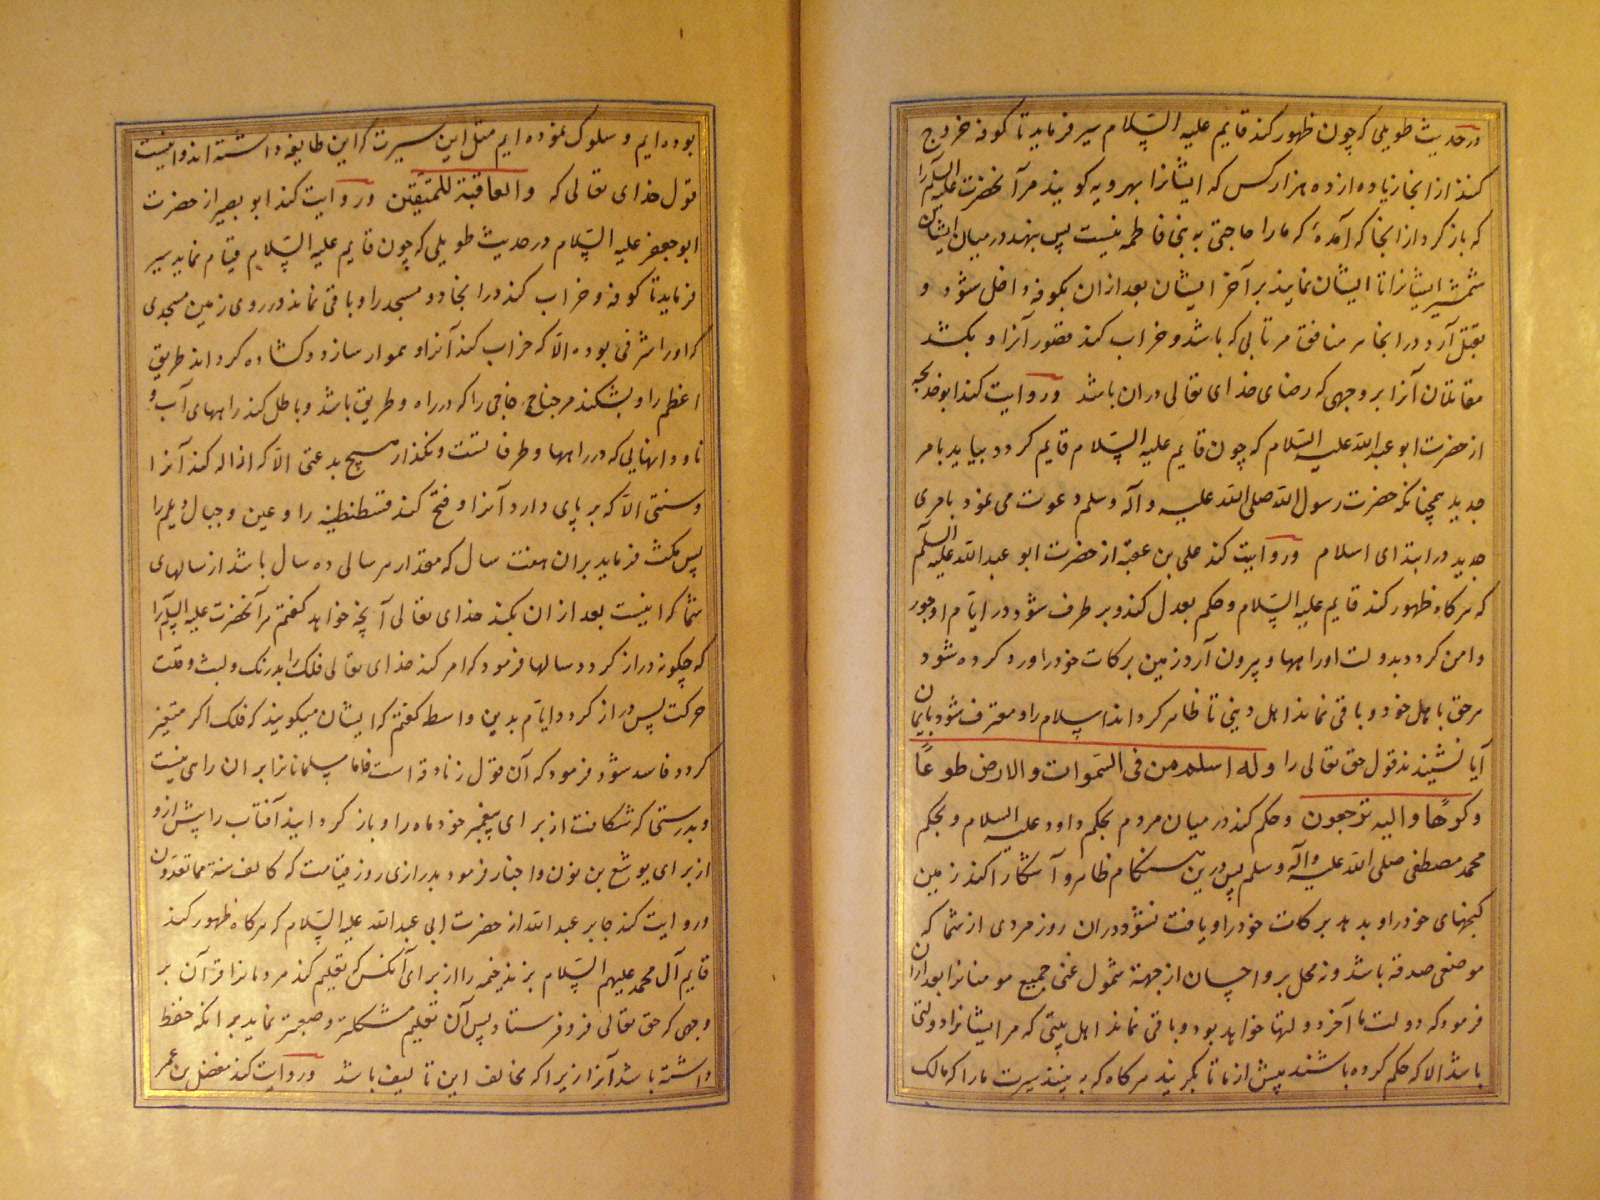 در حدیث طویلی که چون ظهور کند قایم علیه السّلام سیر فرماید تا کوفه خروج
کند از انجا زیاده از ده هزار کس که ایشانرا بهرویه کویند مر آنحضرت علیه السلام را
که باز کرد از انجا که آمدهٔ که ما را حاجتی به بنی فاطمه نیست پس بنهد در میان ایشان
شمشیر ایشانرا تا ایشان نمایند بر آخر ایشان بعد از ان بکوفه داخل شود و
بقتل آرد در انجا هر منافق مرتابی که باشد و خراب کند قصور آنرا و بکشد
مقاتلان آنرا بر وجهی که رضای خدای تعالی در ان باشد و روایت کند ابو خدیجه
از حضرت ابو عبد الله علیه السّلام که چون قایم علیه السّلام قایم کردد بیاید بامر
جدید همچنانکه حضرت رسول الله صلی الله علیه و آله و سلم دعوت می نمود بامری
جدید در ابتدای اسلام و روایت کند علی بن عقبة از حضرت ابو عبد الله علیه السلم
که هر کاه ظهور کند قایم علیه السّلام و حکم بعدل کند و بر طرف شود در ایّام او جور
و امن کردد بدولت او راهها و بیرون آرد زمین برکات خود را و رد کرده شود
هر حق باهل خود و باقی نماند اهل دینی تا ظاهر کردانند اسلام را و معترف شود بایمان
آیا نشنیدند قول حق تعالی را وله اسلم من فی السّموات والارض طوعًا
وکرهًا والیه ترجعون و حکم کند در میان مردم بحکم داود علیه السلام و بحکم
محمد مصطفی صلی الله علیه وآله وسلم پس درین هنکام ظاهر و آشکارا کند زمین
کنجهای خود را و بدهد برکات خود را و یافت نشود در ان روز مردی از شما که
موضعی صدقه باشد و نه محل بر و احسان از جهة شمول غنی جمیع مومنانرا بعد از ان
فرمود که دولت ما آخر دولتها خواهد بود و باقی نماند اهل بیتی که مر ایشانرا دولتی
باشد الا که حکم کرده باشند پیش از ما تا نکویند هر کاه که به بینند سیرت ما را که مالک
بوده ایم و سلوک نموده ایم مثل این سیرت که این طایفه داشته اند و اینست
قول خدای تعالی که والعاقبة للمتقین و روایت کند ابو بصیر از حضرت
ابو جعفر علیه السّلام در حدیث طویلی که چون قایم علیه السّلام قیام نماید سیر
فرماید تا کوفه و خراب کند در انجا دو مسجد را و باقی نماند در روی زمین مسجدی
که او را شرفی بوده الّا که خراب کند آنرا و هموار سازد و کشاده کرداند طریق
اعظم را و بشکند هر جناح خارجی را که در راه و طریق باشد و باطل کند راههای آب و
ناودانهایی که در راهها و طرف تست و نکذارد هیچ بدعتی الّا که ازاله کند آنرا
و سنتی الّا که بر پای دارد آنرا و فتح کند قسطنطنیه را و عین و جبال دیلم را
پس مکث فرماید بر ان هفت سال که مقدار هر سالی ده سال باشد از سالهای
شما که اینست بعد از ان بکند خدای تعالی آنچه خواهد کفتم مر آنحضرت علیه السلم را
که چکونه دراز کردد سالها فرمود که امر کند خدای تعالی فلک را بدرنک و لبث و قلت
حرکت پس دراز کردد ایّام بدین واسطه کفتم که ایشان میکویند که فلک اکر متغیر
کردد فاسد شود فرمود که آن قول زنادقه است فاما مسلمانانرا بر ان راهی نیست
و بدرستی که شکافت از برای پیغمبر خود ماه را و باز کردانید آفتاب را پیش از و
از برای یوشع بن نون و اخبار فرمود بدرازی روز قیامت که کالف سنة مما تعدون
و روایت کند جابر عبد الله از حضرت ابی عبد الله علیه السّلام که هر کاه ظهور کند
قایم آل محمد علیهم السّلام بزند خیمه را از برای آنکس که تعلیم کند مردمانرا قرآن بر
وجهی که حق تعالی فرو فرستاد پس آن تعلیم مشکلتر و صعبتر نماید بر انکه حفظ
داشته باشد آنرا زیرا که مخالف این تالیف باشد و روایت کند مفضل بن عمر